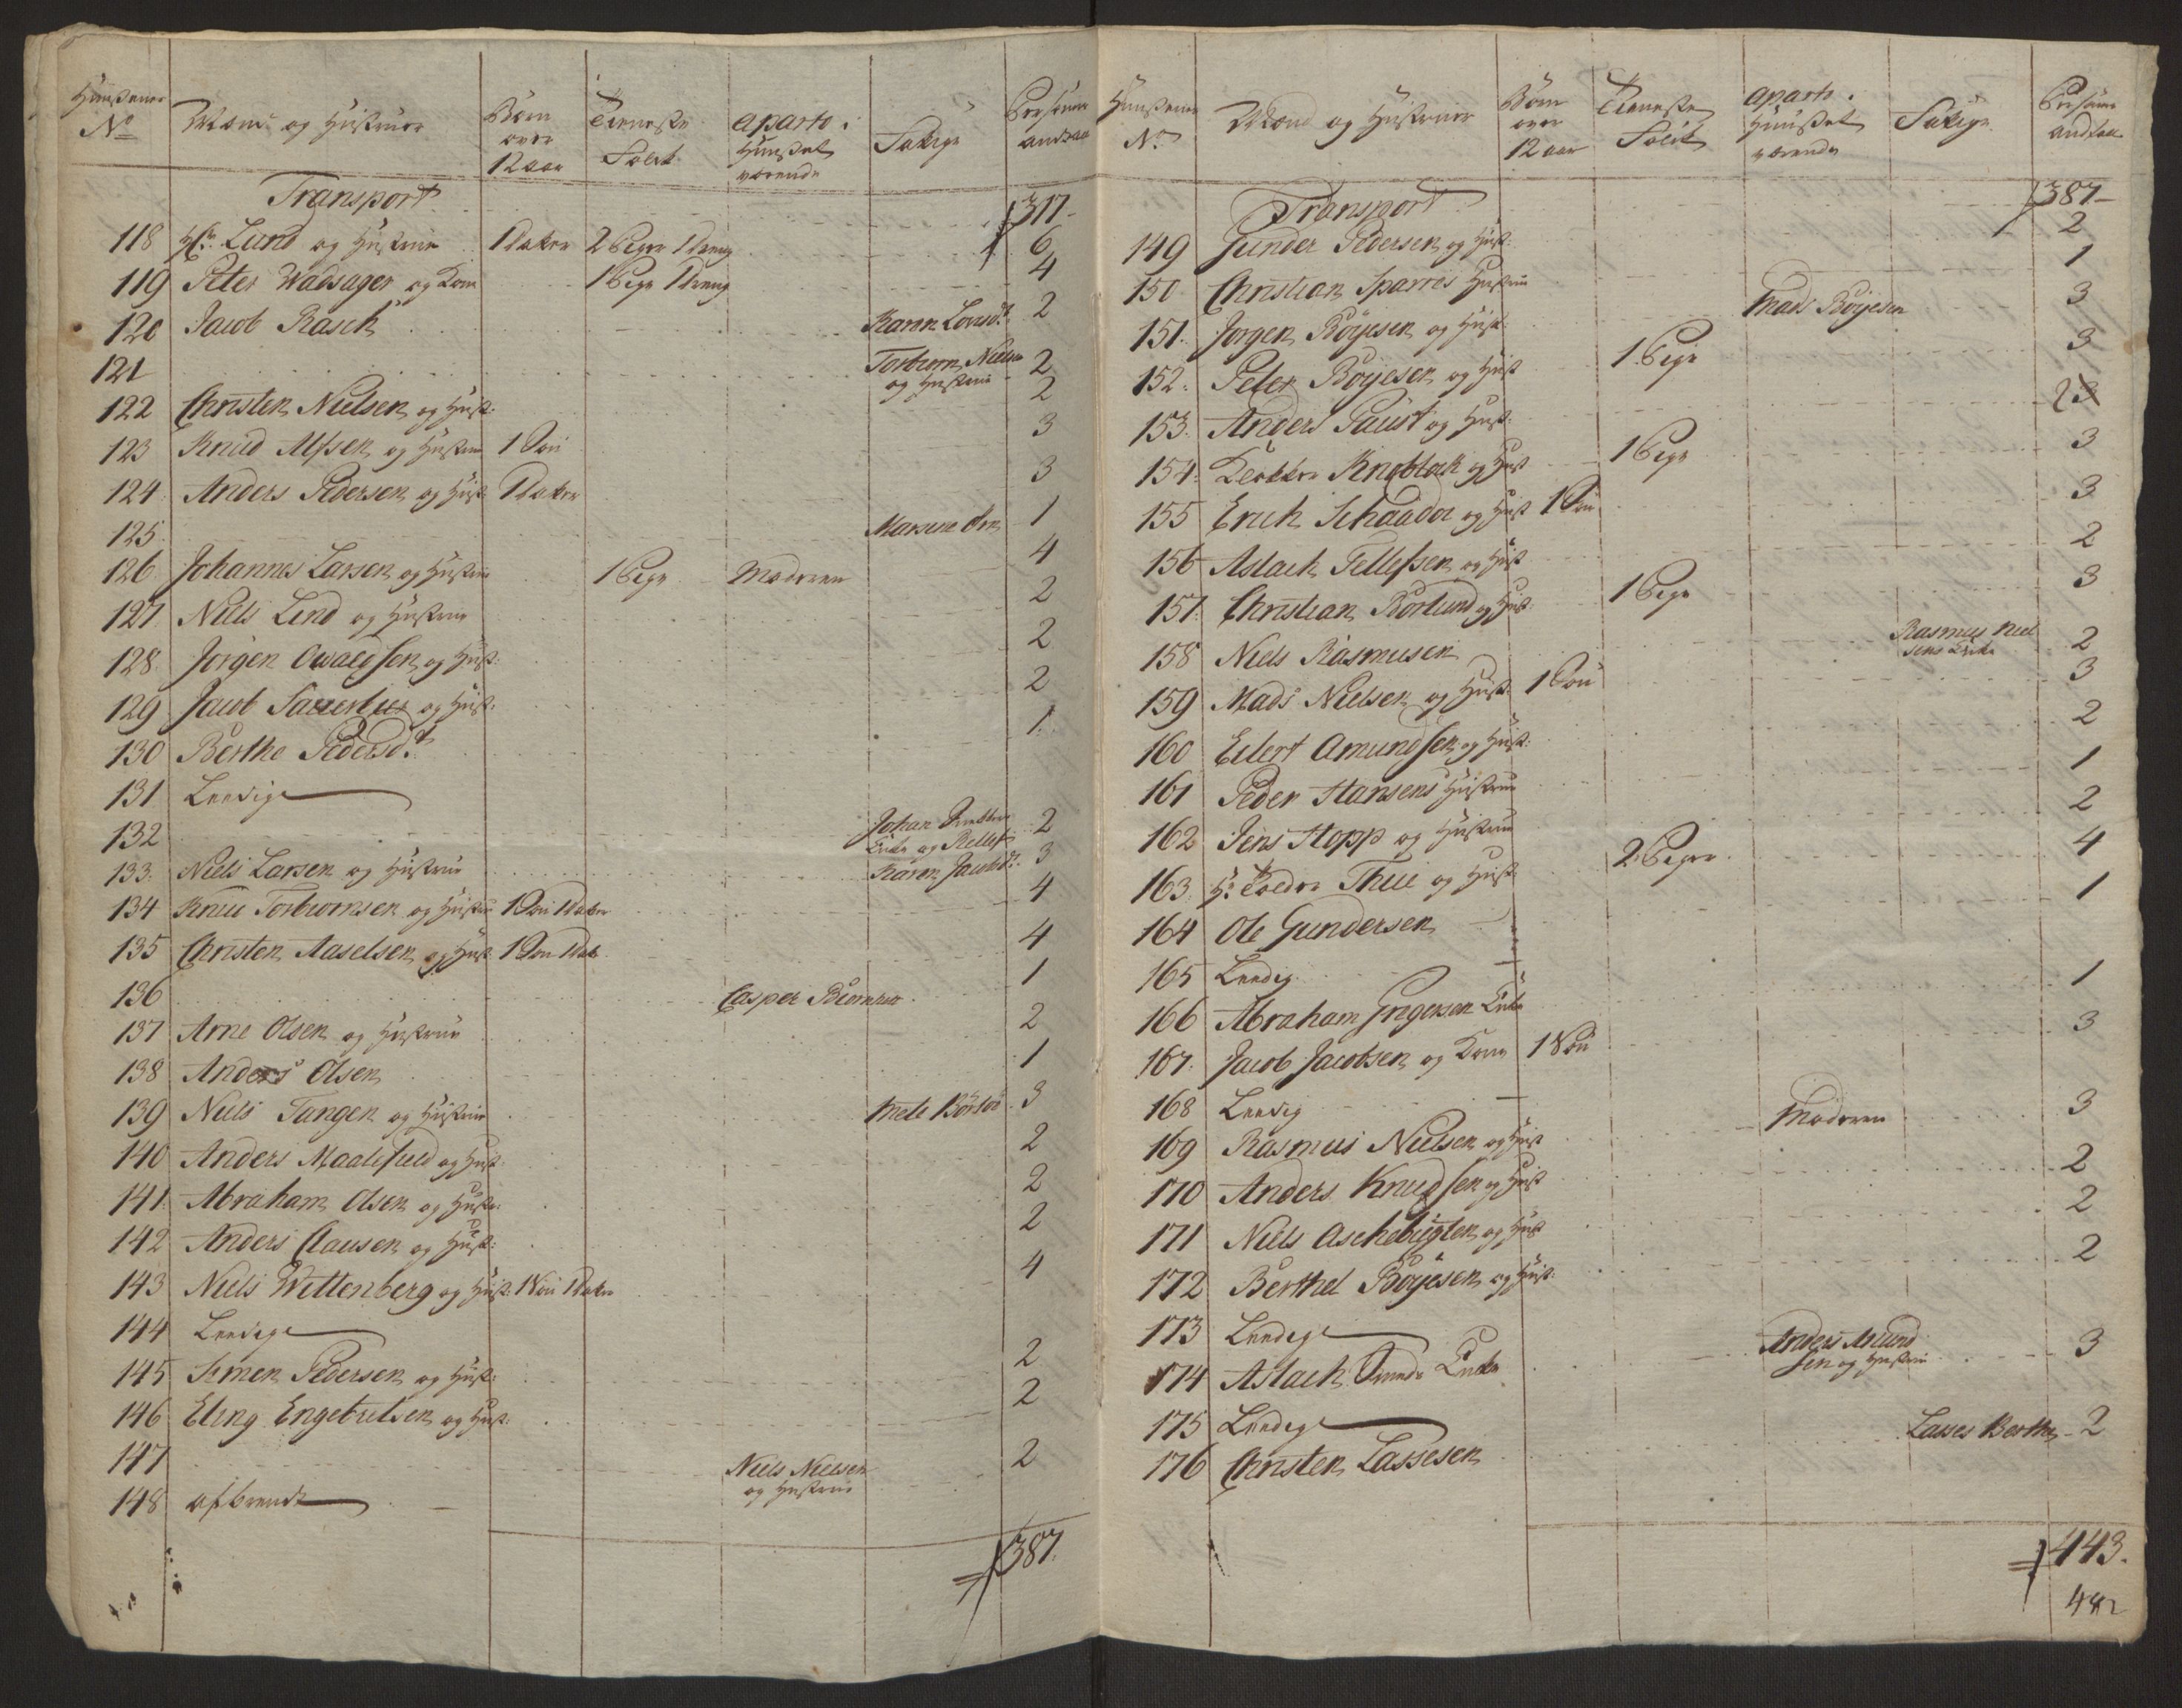 Huusenes No | Mænd og Hustruer | Børn over 12 aar | Tieneste Folk | aparte i Huuset værende | Fattige | Persone antall
Transport 317
118 Hr. Lund og Hustrue 1 Datter 2 Piger 1 Dreng 6
119 Peter Wadsager og Kone 1 Pige 1 Dreng 4
120 Jacob Rasch Karen Larsd.t 2
121 Torbiorn Nielsen og Hustrue 2
122 Christen Nielsen og Hust: 2
123 Knud Alfsen og Hustrue 1 Søn 3
124 Anders Pedersen og Hust: 1 Datter 3
125 1
126 Johannes Larsen og Hustrue 1 Pige Moderen 4
127 Niels Lind og Hustrue 2
128 Jørgen Owaldsen og Hust: 2
129 Jacob og Hust: 2
130 Berthe Pedersd.t 1
131 Leedige
132 Johan 2
133 Niels Larsen og Hustrue Karen Jacobsd.t 3
134 Knud Torbiornsen og Hustrue 1 Søn 1 Datter 4
135 Christen Aaselsen og Hust: 1 Søn 1 Datt. 4
136 Casper 1
137 Arne Olsen og Hustrue 2
138 Anders Olsen 1
139 Niels Tangen og Hustrue Mete 3
140 Anders og Hust: 2
141 Abraham Olsen og Hustr: 2
142 Anders Clausen og Hust: 2
143 Niels Wettenberg og Hust: 1 Søn 1 Datter 4
144 Leedige
145 Simen Pedersen og Hust: 2
146 Eling Engebretsen og Hust: 2
147 Niels Nielsen og Hustrue 2
148 afbrendt
387.
Huusenes No | Mænd og Hustruer | Børn over 12 aar | Tieneste Folk | aparte i Huuset værende | Fattige | Persone antall
Transport 387
149 Gunder Pedersen og Hust: 2
150 Christian Sparres Hustrue 1
151. Jørgen Böyesen og Hust: Mads Böyesen 3
152. Peter Böyesen og Hust 1 Pige 3
153. Anders Faust og Hust: 2 3
154. Knoblock og Hust 1 Pige 3
155 Erich Schaador og Hust 1 Søn 3
156 Aslach Tellefsen og Hust 2
157. Christian Borlund og Hust: 1 Pige 3
158 Niels Rasmusen Rasmus Nielsens Enke 2
159 Mads Nielsen og Hust: 1 Søn 3
160 Eilert Amundsen og Hust: 2
161 Peder Hansens Hustrue 1
162 Jens Hopp og Hustrue 2
163. Hr. Thue og Hust 2 Piger 4
164 Ole Gundersen 1
165 Leedig
166 Abraham Ingersen Enke 1
167. Jacob Jacobsen og Kone 1 Søn 3
168 Leedig
169 Rasmus Nielsen og Hust Moderen 3
170 Anders Knudsen og Hust 2
171 Niels og Hust 2
172 Berthel Böyesen og Hust: 2
173 Leedige
174 Aslach Enke Anders Aslundsen og Hustrue 3
175 Leedige
176 Christen Lassesen Lasses Berthe 2
443.